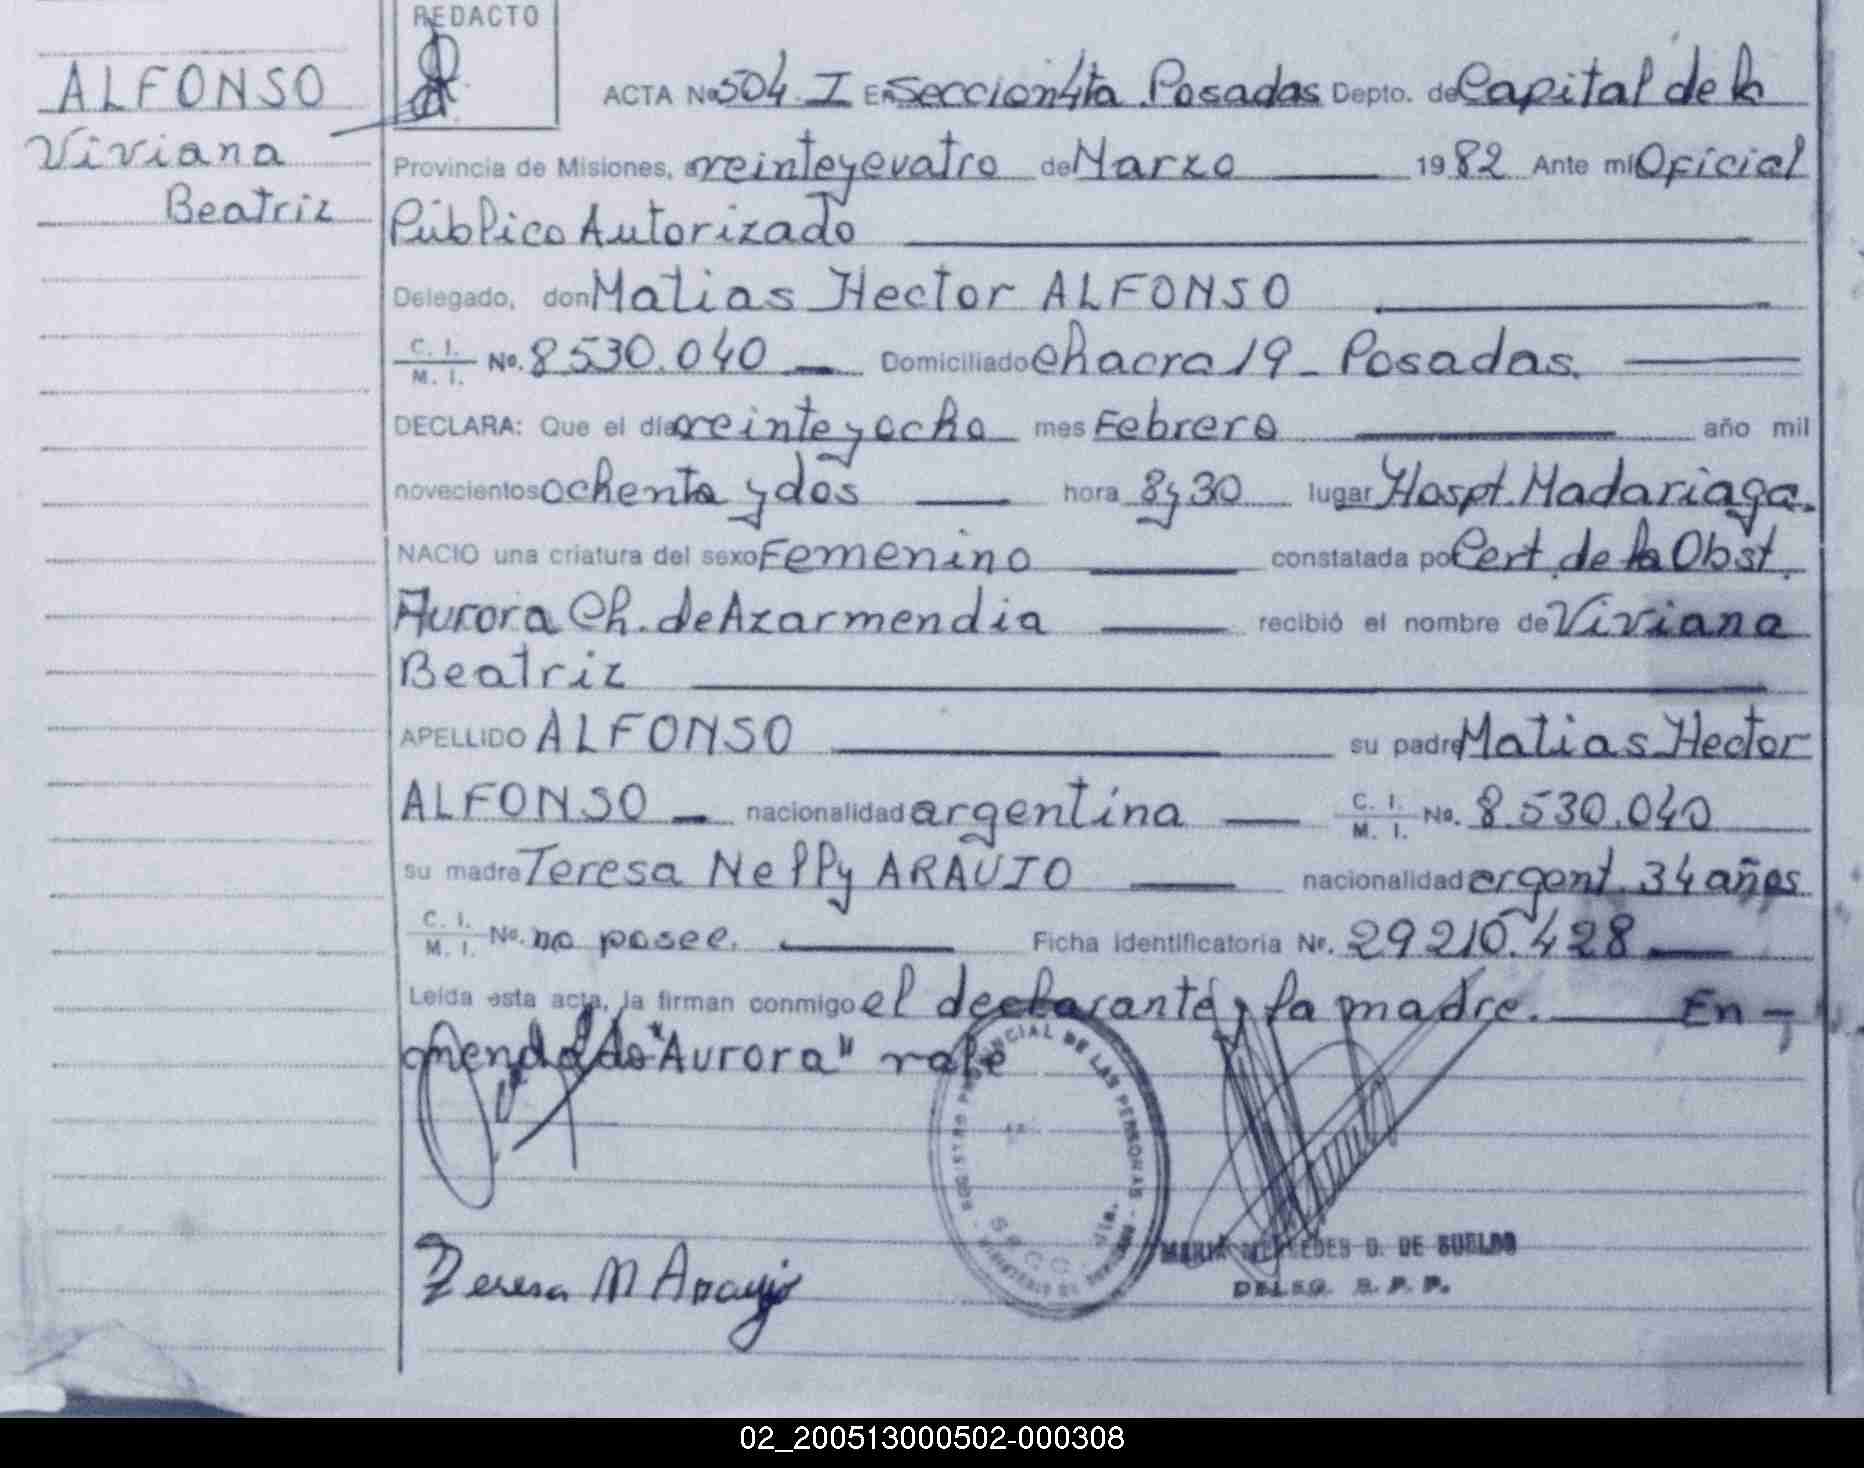 REDACTO
ALFONSO
Viviana
Beatriz
ACTA No 504. I En Seccion 4ta Posadas Depto. de Capital de la
Provincia de Misiones, a veinte y cuatro de Marzo 1982 Ante mi Oficial
Público Autorizado
Delegado, don Matias Hector ALFONSO
C. I. / M. I. No. 8.530.040 Domiciliado Chacra 19 - Posadas.
DECLARA: Que el día veinte y ocho mes Febrero año mil
novecientos ochenta y dos hora 8 y 30 lugar Hospt. Madariaga.
NACIO una criatura del sexo Femenino constatada por Cert. de la Obst.
Aurora Ch. de Azarmendia recibió el nombre de Viviana
Beatriz
APELLIDO ALFONSO su padre Matias Hector
ALFONSO nacionalidad argentina C. I. / M. I. No. 8.530.040
su madre Teresa Nelly ARAUJO nacionalidad argent. 34 años
C. I. / M. I. No. no posee. Ficha identificatoria No. 29210.428
Leída esta acta, la firman conmigo el declarante y la madre. En -
mendado "Aurora" vale
REGISTRO PROVINCIAL DE LAS PERSONAS
SECC. 4ta.
Teresa N Araujo
MARIA MERCEDES D. DE SUELDO
DELEG. R. P. P.
02_200513000502-000308